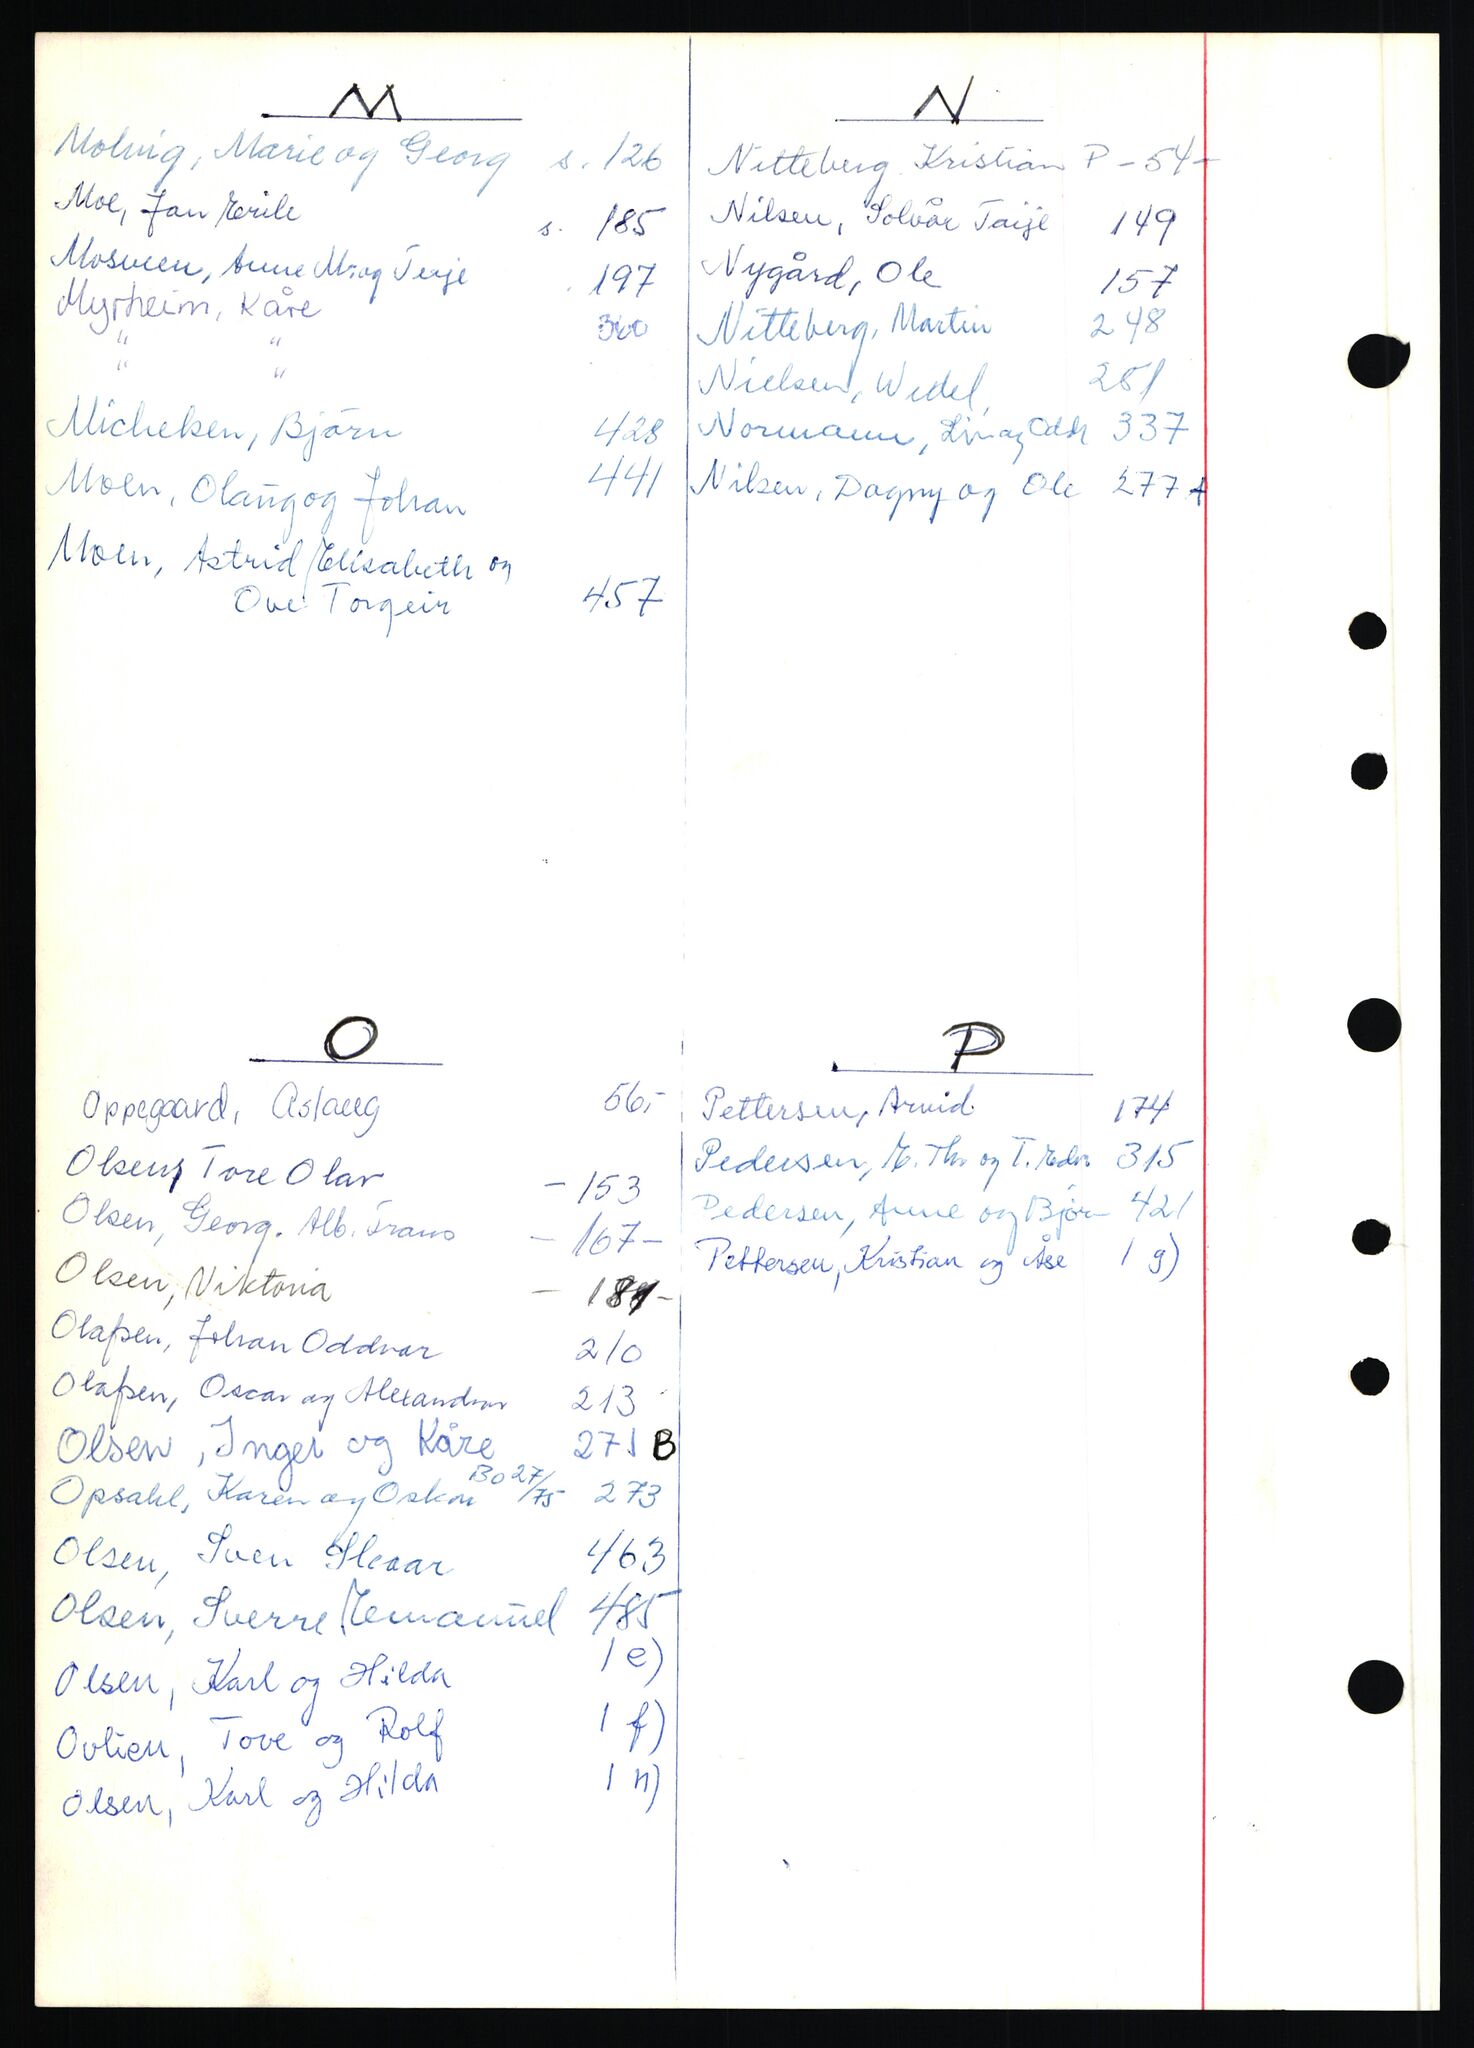 M
Molvig, Marie og Georg s. 126
Moe, Jan Erik s. 185
Mosveen, Anne M. og Terje 197
Myrheim, Kåre 360
" "
" "
Michelsen, Bjørn 428
Moen, Olaug og Johan 441
Moen, Astrid Elisabeth og
Ove Torgeir 457
N
Nitteberg Kristian P - 54 -
Nilsen, Solvår Taije 149
Nygård, Ole 157
Nitteberg, Martin 248
Nielsen, Wedel, 251
Normann, Liv og Oddv 337
Nilsen, Dagny og Ole 277 A
O
Oppegaard, Aslaug 56,-
Olsen, Tore Olav - 153
Olsen, Georg. Alb. Frans - 167 -
Olsen, Viktoria - 181 -
Olafsen, Johan Oddvar 210
Olafsen, Oscar og Alexandra 213
Olsen, Inger og Kåre 271 B
Opsahl, Karen og Oskar Bo 27/75 273
Olsen, Sven Skaar 463
Olsen, Sverre Emanuel 485
Olsen, Karl og Hilda 1 e)
Ovlien, Tove og Rolf 1 f)
Olsen, Karl og Hilda 1 n)
P
Pettersen, Arvid 174
Pedersen, E. Thv og T. Edv 315
Pedersen, Anne og Bjørn 421
Pettersen, Kristian og Åse 1 g)